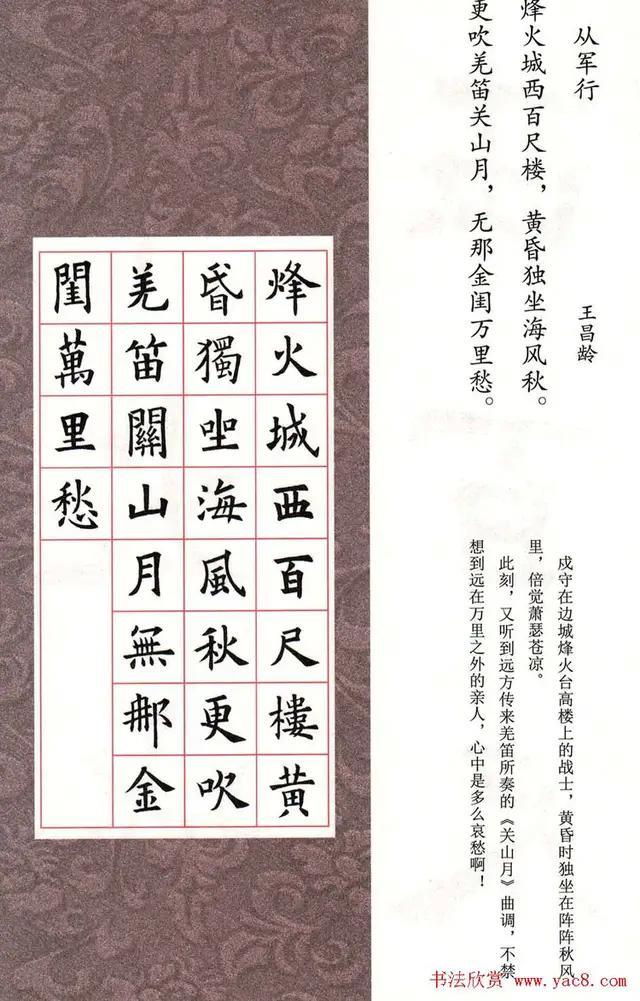 从军行
王昌龄
烽火城西百尺楼，黄昏独坐海风秋。
更吹羌笛关山月，无那金闺万里愁。
戍守在边城烽火台高楼上的战士，黄昏时独坐在阵阵秋风
里，倍觉萧瑟苍凉。
此刻，又听到远方传来羌笛所奏的《关山月》曲调，不禁
想到远在万里之外的亲人，心中是多么哀愁啊！
烽火城西百尺樓黄
昬獨坐海風秋更吹
羌笛關山月無那金
閨萬里愁
书法欣赏 www.yac8.com